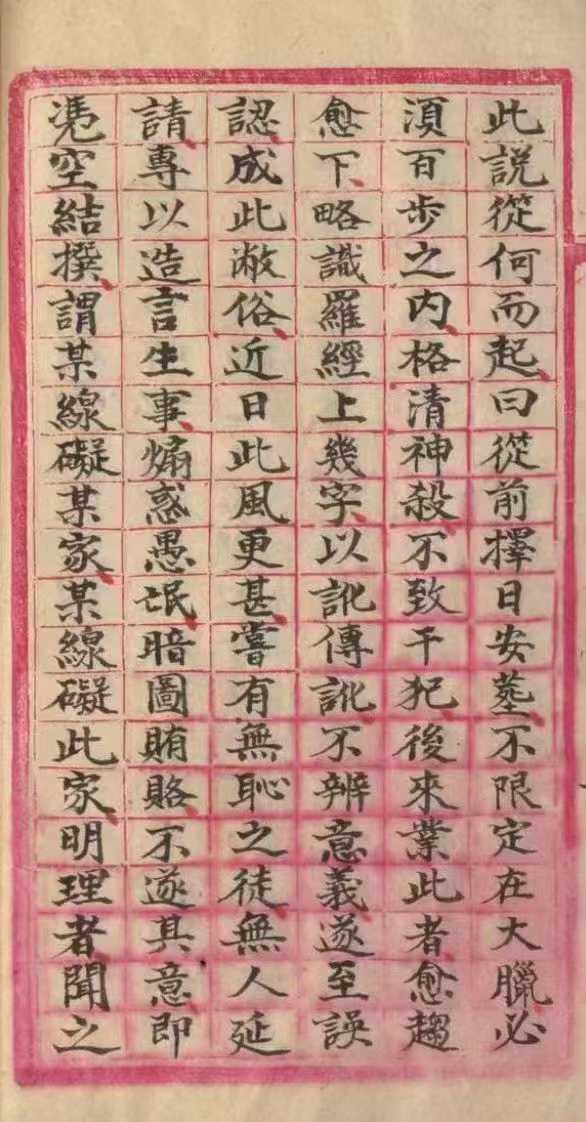 此説從何而起曰從前擇日安墓不限定在大臘必
湏百步之内格清神殺不致干犯後來業此者愈趨
愈下略識羅經上幾字以訛傳訛不辨意義遂至誤
認成此敝俗近日此風更甚嘗有無恥之徒無人延
請專以造言生事煽惑愚氓暗圖賄賂不遂其意即
憑空結撰謂某線礙某家某線礙此家明理者聞之